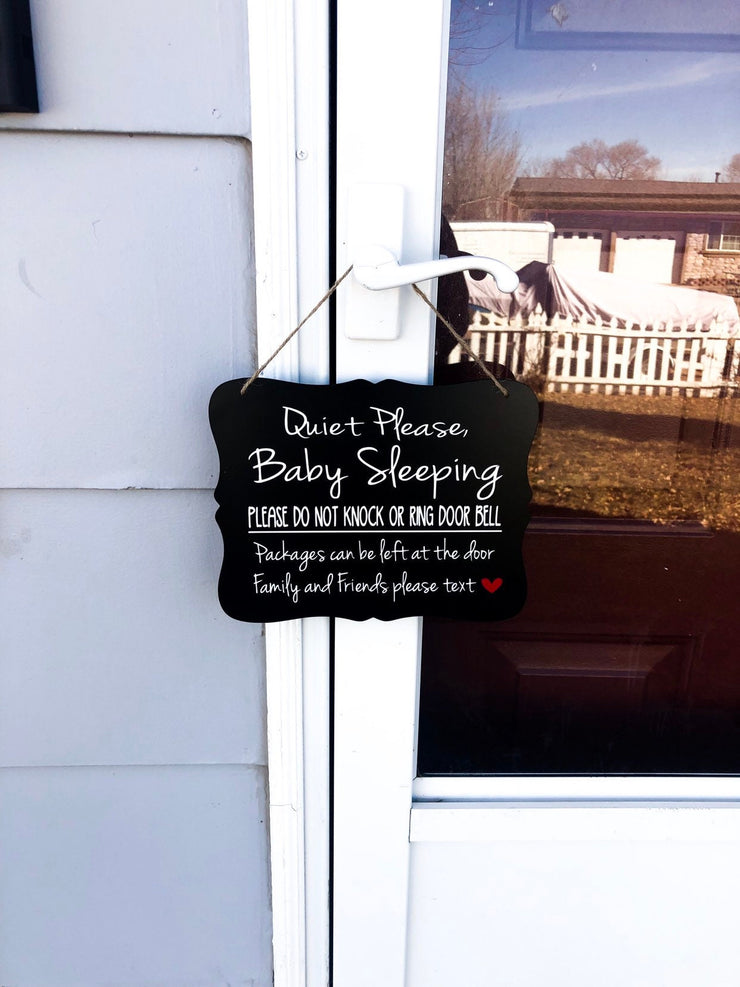 Quiet Please,
Baby Sleeping
PLEASE DO NOT KNOCK OR RING DOOR BELL
Packages can be left at the door
Family and Friends please text ❤